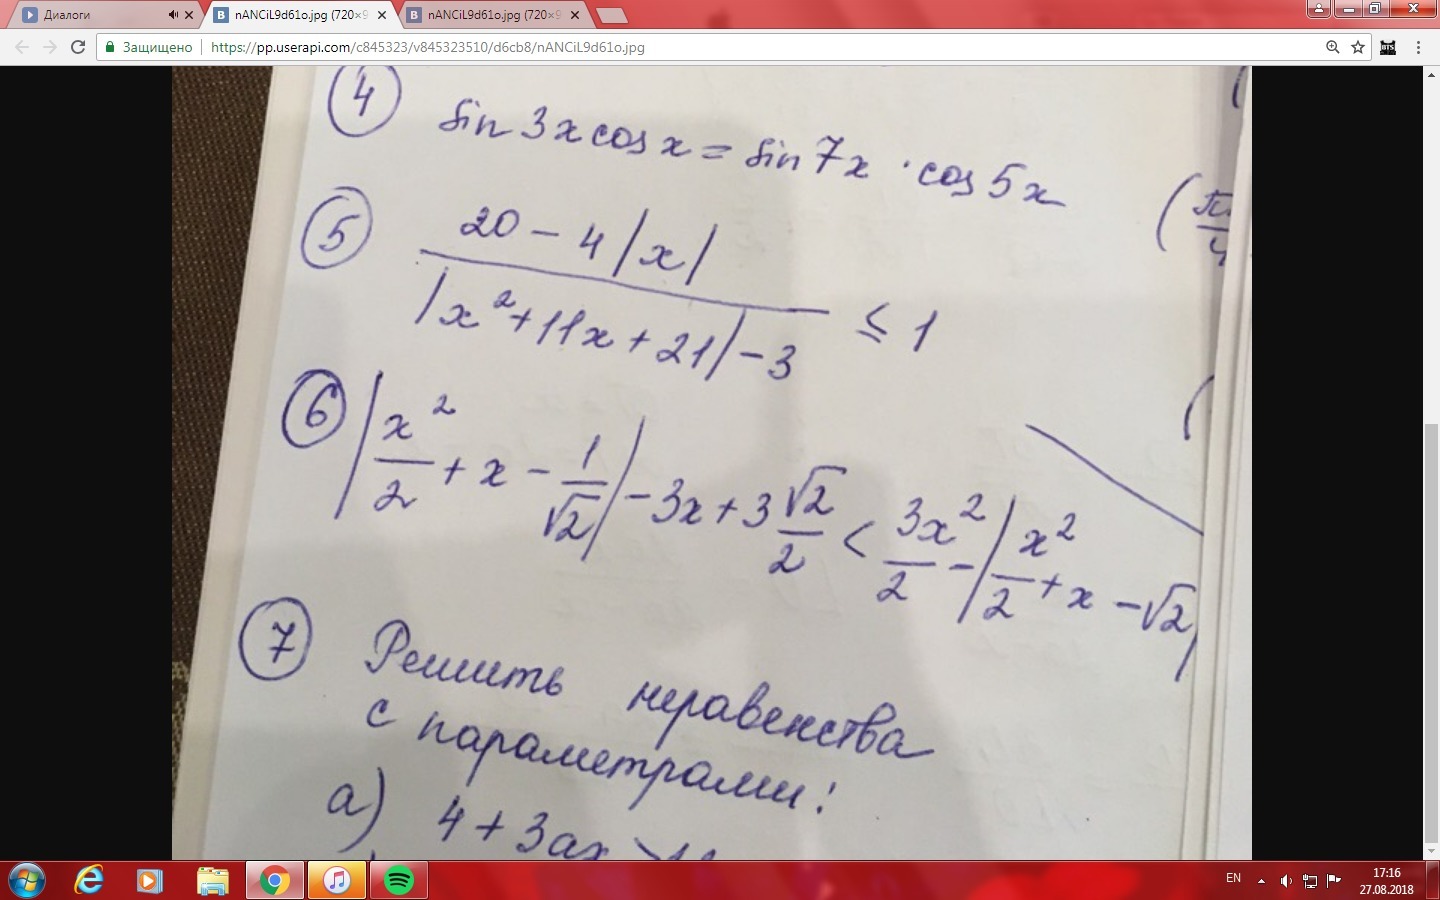 Диалоги
nANCiL9d61o.jpg (720×9
nANCiL9d61o.jpg (720×9
Защищено
https://pp.userapi.com/c845323/v845323510/d6cb8/nANCiL9d61o.jpg
4 sin 3x cos x = sin 7x · cos 5x
(π/4
5 (20 - 4|x|)/(|x²+11x+21|-3) ≤ 1
6 |x²/2 + x - 1/√2| - 3x + 3 √2/2 < 3x²/2 - |x²/2 + x - √2|
7 Решить неравенства
с параметрами:
а) 4 + 3ax >
EN
17:16
27.08.2018